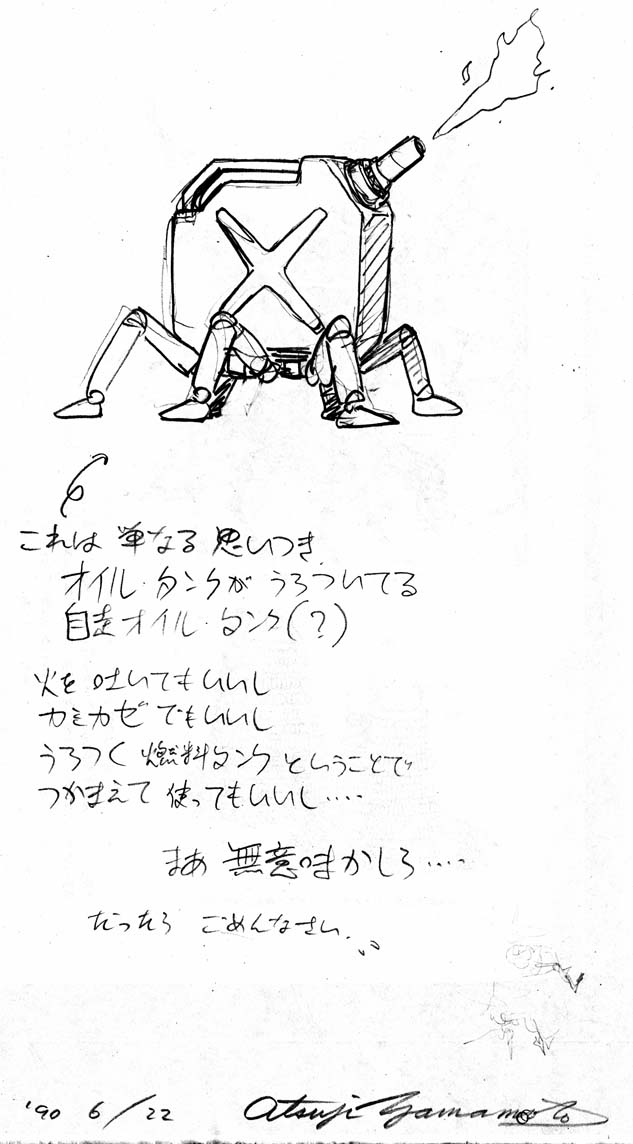 これは 単なる 思いつき
オイル・タンクが うろついてる
自走オイル・タンク(?)
火を 吐いてもいいし
カミカゼ でもいいし
うろつく 燃料タンク ということで
つかまえて 使ってもいいし‥‥
まあ 無意味かしら‥‥
だったら ごめんなさい。
'90 6/22 Atsuji Yamamoto